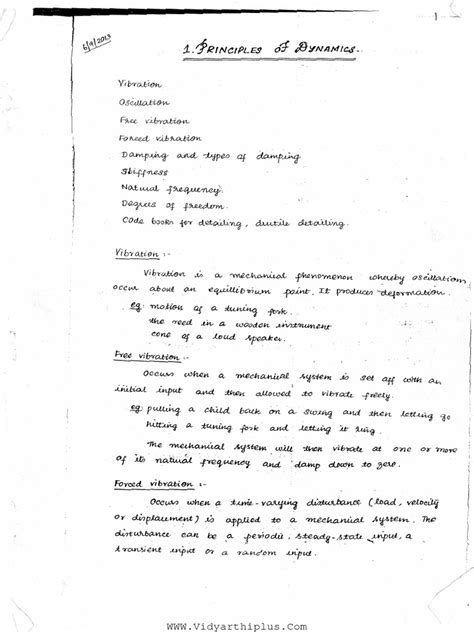 1
6/9/2013
1. PRINCIPLES OF DYNAMICS.
Vibration
Oscillation
Free vibration
Forced vibration
Damping and types of damping
Stiffness
Natural frequency.
Degrees of freedom.
Code books for detailing, ductile detailing.
Vibration :-
Vibration is a mechanical phenomenon whereby oscillations
occur about an equillibrium point. It produces deformation.
eg: motion of a tuning fork.
the reed in a wooden instrument
cone of a loud speaker.
Free vibration :-
Occurs when a mechanical system is set off with an
initial input and then allowed to vibrate freely.
eg: pulling a child back on a swing and then letting go
hitting a tuning fork and letting it ring.
The mechanical system will then vibrate at one or more
of its natural frequency and damp down to zero.
Forced vibration :-
Occurs when a time-varying disturbance (load, velocity
or displacement) is applied to a mechanical system. The
disturbance can be a periodic, steady-state input, a
transient input or a random input.
www.Vidyarthiplus.com